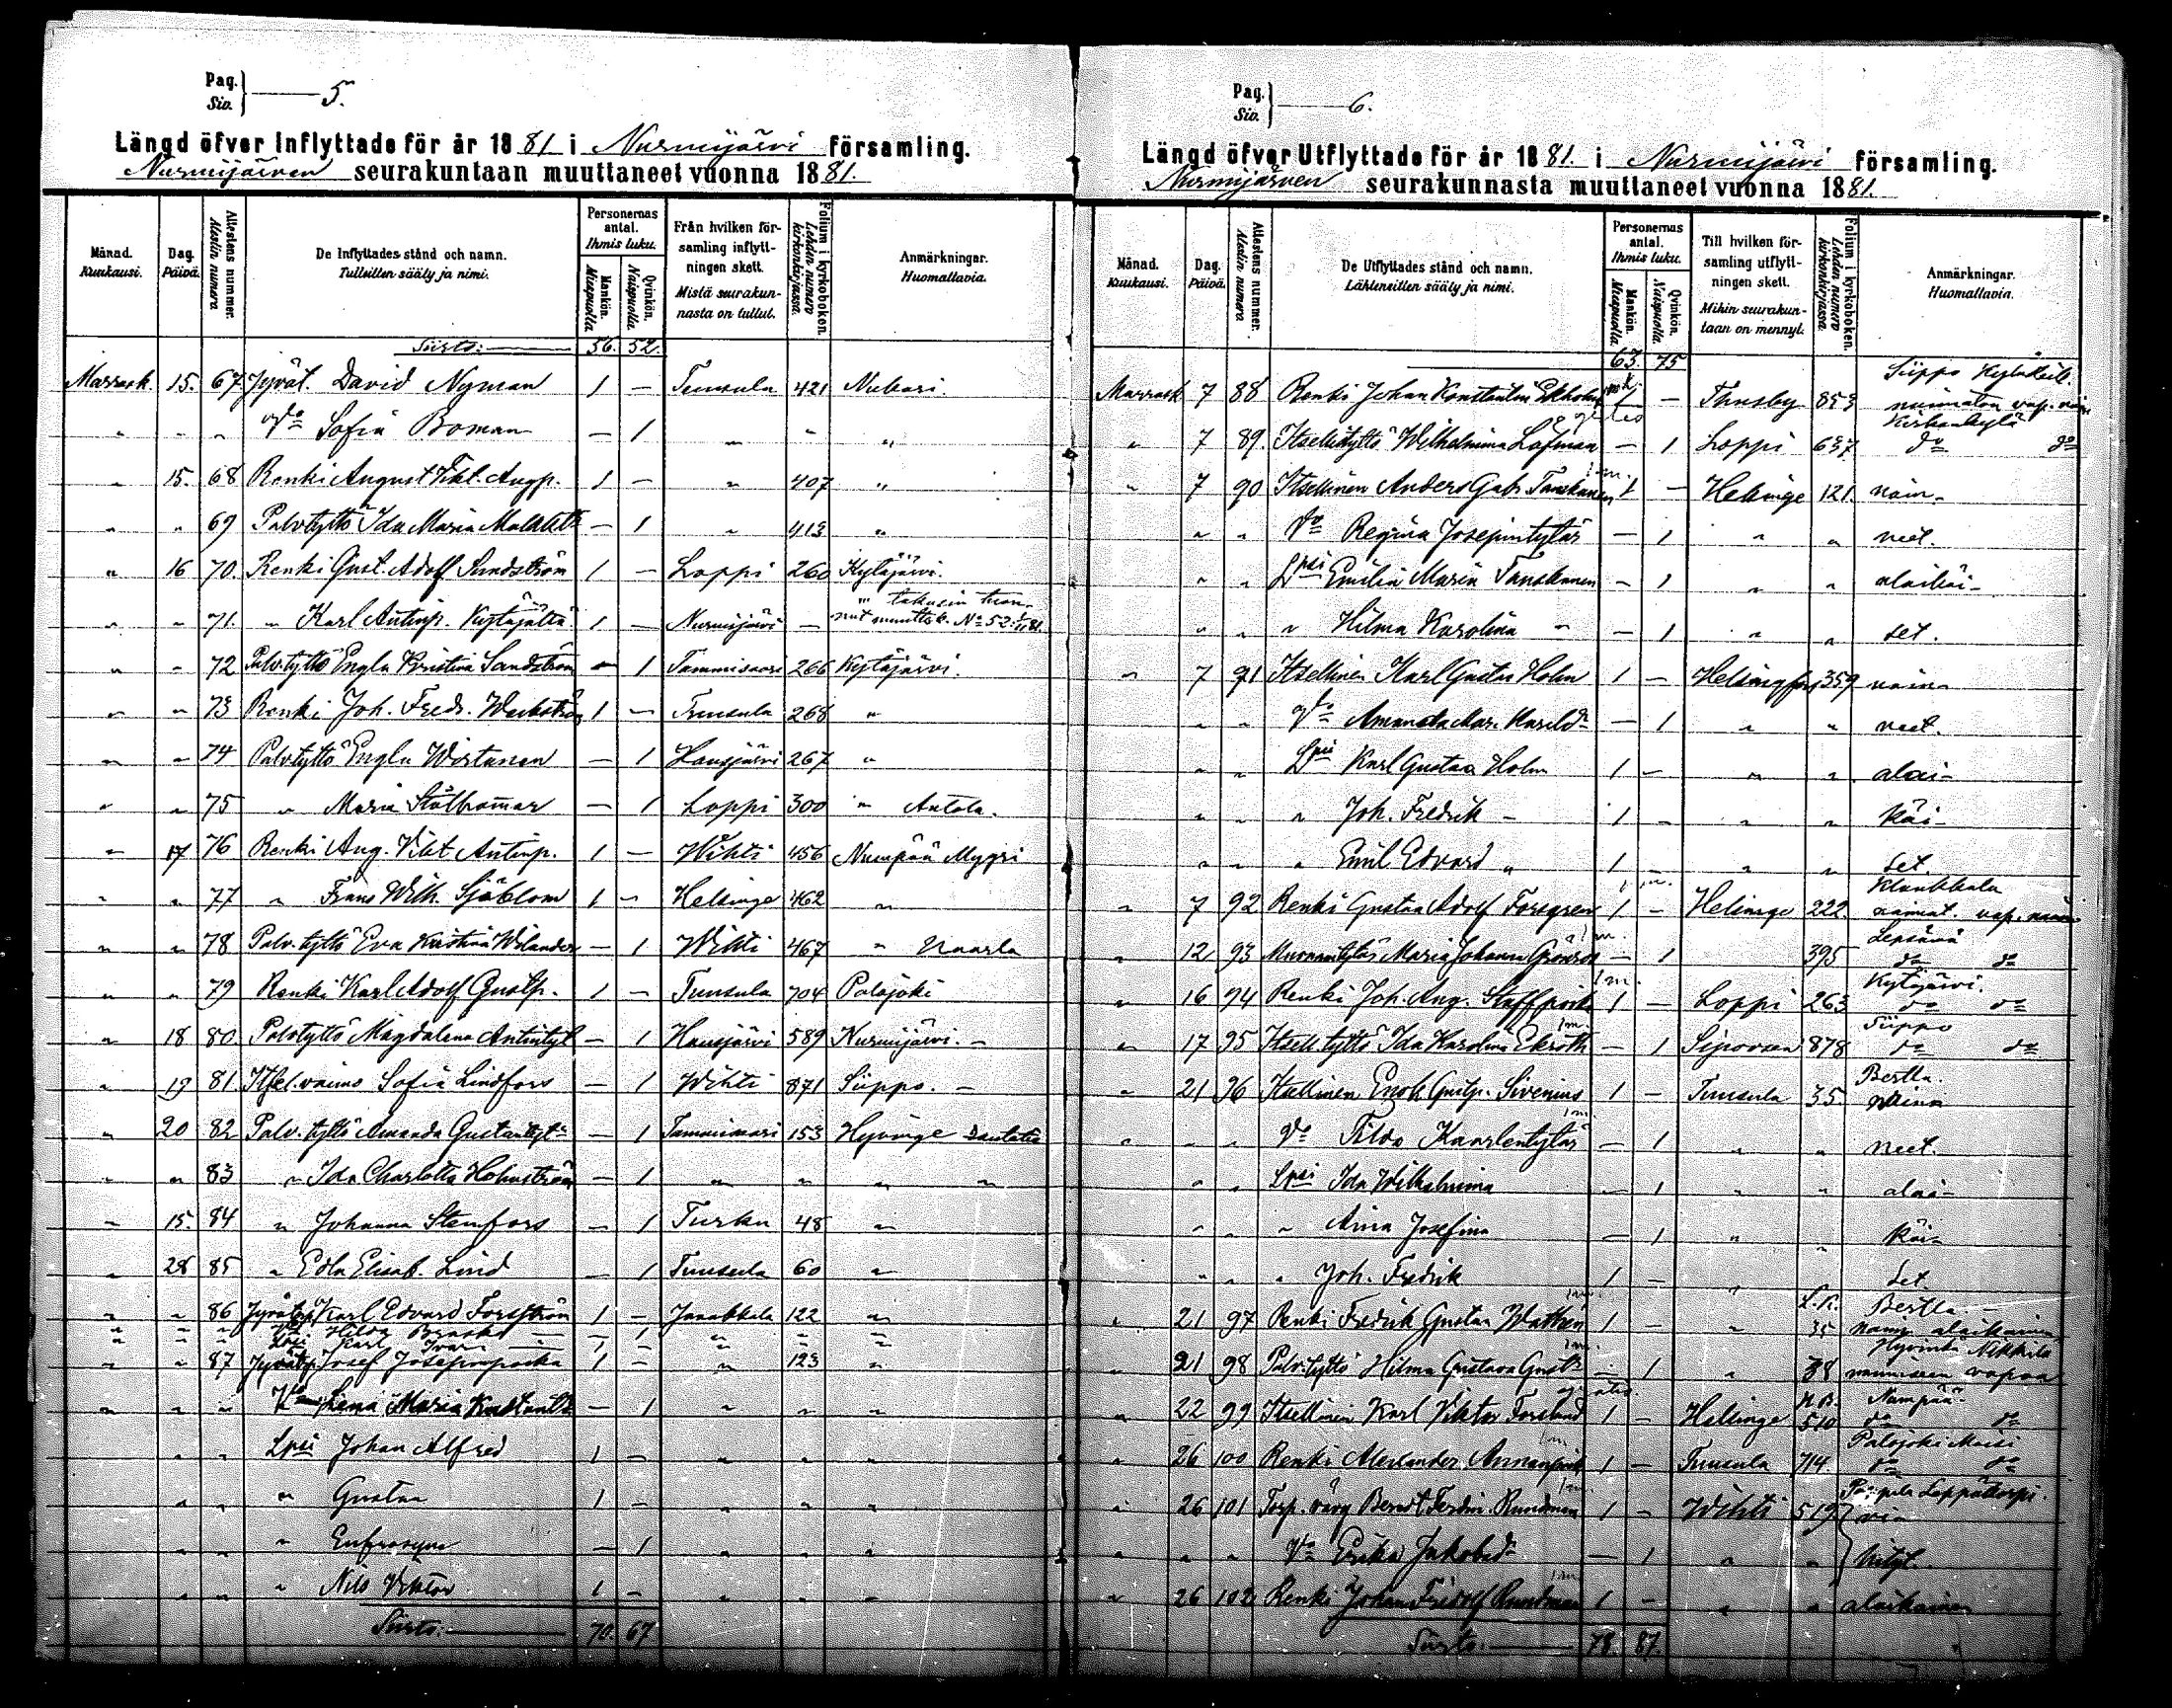 Pag. Siv. } 5.
Längd öfver Inflyttade för år 1881 i Nurmijärvi församling.
Nurmijärven seurakuntaan muuttaneet vuonna 1881.
Månad. Kuukausi. Dag. Päivä. Attestens nummer. Atestin numero De Inflyttades stånd och namn. Tulleitten sääty ja nimi. Personernas antal. Ihmis luku. Mankön. Miespuolta Qvinkön. Naispuolta Från hvilken församling inflyttningen skett. Mistä seurakunnasta on tullut. Folium i kyrkoboken. Lehden numero kirkonkirjassa. Anmärkningar. Huomattavia.
Siirto: 56. 52.
Marrask. 15. 67 Jyvät. David Nyman 1 – Tuusula 421 Nukari.
" " " Vo Sofia Boman – 1 " " "
" 15. 68 Renki August Vikt. Augp. 1 – " 407 "
" " 69 Palvtyttö Ida Maria – 1 " 413 "
" 16 70. Renki Gust. Adolf Sundström 1 – Loppi 260 Kytäjärvi.
" " 71. " Karl Antinp. Kytäjältä 1 – Nurmijärvi – takasin tuonut muuttok. No 52.
" " 72 Palv.tyttö Engla Kristina Sandström – 1 Tammisaari 266 Kytäjärvi.
" " 73 Renki Joh. Fredr. 1 – Tuusula 268 "
" " 74 Palvtyttö Engla Wirtanen – 1 Hausjärvi 267 "
" " 75 " Maria Stålhammar – 1 Loppi 300 " Antola.
" 17 76 Renki Aug. Vikt Antinp. 1 – Wihti 456 Numpää Myyri
" " 77 " Frans Wilh. Sjöblom 1 – Helsinge 462 "
" " 78 Palv.tyttö Eva Kristina Wilander – 1 Wihti 467 " Uuarla
" " 79 Renki Karl Adolf Gustfp. 1 – Tuusula 704 Palojoki
" 18 80. Palvtyttö Magdalena Antintyt – 1 Hausjärvi 589 Nurmijärvi. –
" 19 81. Itsel.vaimo Sofia Lindfors – 1 Wihti 871 Siippo. –
" 20 82 Palv.tyttö Amanda Gustavityt – 1 Tammisaari 153 Hyvinge
" " 83 " Ida Charlotta Holmström – 1 " " " "
" 15. 84 " Johanna Stenfors – 1 Turku 48 "
" 28 85 " Edla Elisab. Lind – 1 Tuusula 60 "
" " 86 Karl Edvard Forsström 1 – Janakkala 122 "
" " " Hilda – 1 " " "
" " " Lpsi Karl Ivar 1 – " " "
" " 87 Josef Josepinpoika 1 – " 123 "
" " " Lena Maria – 1 " " "
" " " Lpsi Johan Alfred 1 – " " "
" " " " Gustaa 1 – " " "
" " " " Eufrosyne – 1 " " "
" " " " Nils Viktor 1 – " " "
Siirto: 70. 67
Pag. Siv. } 6.
Längd öfver Utflyttade för år 1881. i Nurmijärvi församling.
Nurmijärven seurakunnasta muuttaneet vuonna 1881.
Månad. Kuukausi. Dag. Päivä. Attestens nummer. Atestin numero De Utflyttades stånd och namn. Lähteneitten sääty ja nimi. Personernas antal. Ihmis luku. Mankön. Miespuolta. Qvinkön. Naispuolta. Till hvilken församling utflyttningen skett. Mihin seurakuntaan on mennyt. Folium i kyrkoboken. Lehden numero kirkonkirjassa. Anmärkningar. Huomattavia.
63. 75
Marrask 7 88 Renki Johan Konstantin Ekholm 1 – Thusby 853 Siippo naimaton vap.
" 7 89. Itsellistyttö Wilhelmina Löfman – 1 Loppi 637 Kirkonkylä do do
" 7 90 Itsellinen Anders Gabr. Tanskanen 1 – Helsinge 121. nain-
" " Vo Regina Josepintytär – 1 " " neet.
" " Lpsi Emilia Maria Tanskanen – 1 " " alaikäi-
" " " Hilma Karolina " – 1 " " set.
" 7 91 Itsellinen Karl Gustav Holm 1 – Helsingfors 359 nain-
" " Vo Amanda Mar. – 1 " " neet.
" " Lpsi Karl Gustaa Holm 1 – " " alai-
" " " Joh. Fredrik – 1 – " " käi-
" " " Emil Edvard " 1 – " " set.
" 7 92 Renki Gustaa Adolf Forsgren 1 – Helsinge 222 Klaukkala naimat. vap.
" 12 93 Maria Johanna Grönros – 1 395 Lepsämä do do
" 16 94 Renki Joh. Aug. 1 – Loppi 263 Kytäjärvi. do do
" 17 95 Itsell.tyttö Ida Karolina Ekroth – 1 Sipoosen 878 Siippo do do
" 21 96 Itsellinen Enok Gustp. Sivenius 1 – Tuusula 35. Bertla. nain
" " " Vo Tilda Kaarlentytär – 1 " " neet.
" " Lpsi Ida Wilhelmina – 1 " " alai-
" " " Aina Josefina – 1 " " käi-
" " " Joh. Fredrik 1 – " set
" 21 97 Renki Fredrik Gustaa 1 – " L.K. 35 Bertla. – alaikäinen
" 21 98 Palv.tyttö Hilma Gustava – 1 " 88 Hyvinkä Nikkilä vapaa
" 22 99 Itsellinen Karl Viktor Forslund 1 – Helsinge 510 Numpää do do
" 26 100 Renki Alexander 1 – Tuusula 714 Palojoki do do
" 26 101 Torp. Berndt Ferdin. Rundman 1 – Wihti 519
" " " Vo Erika Jakobsdr – 1 " "
" 26 102 Renki Johan Fridolf Rundman 1 – " " alaikäinen
Siirto: 78. 87.